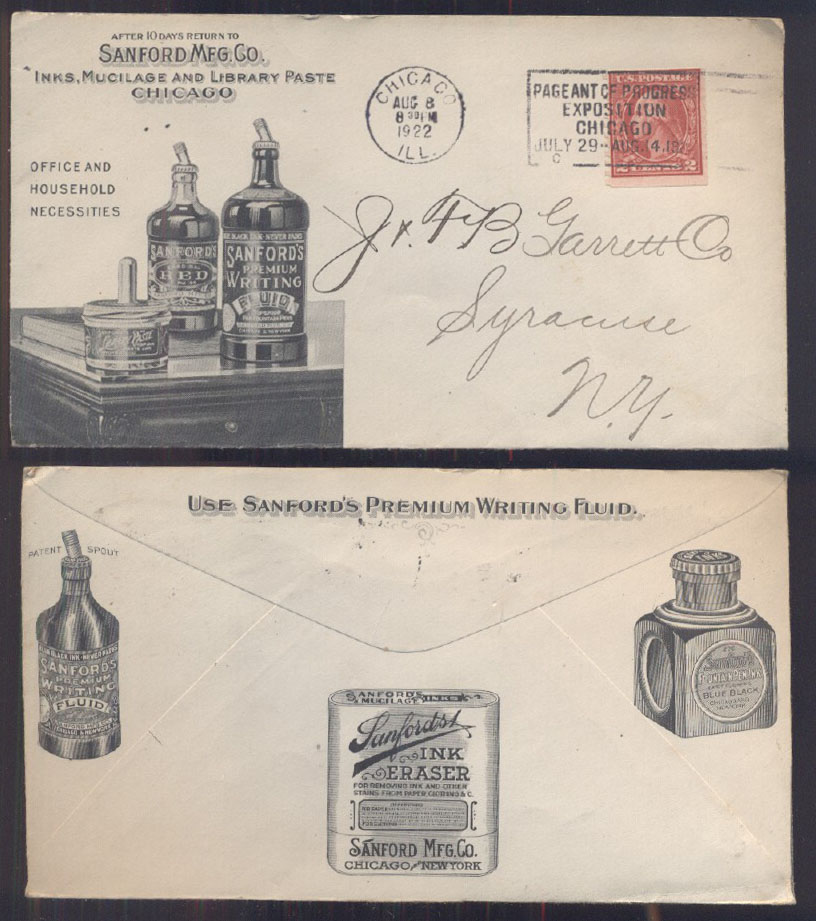 AFTER 10 DAYS RETURN TO
SANFORD MFG. CO.
INKS, MUCILAGE AND LIBRARY PASTE
CHICAGO
OFFICE AND
HOUSEHOLD
NECESSITIES
SANFORD'S
RED
BLACK INK-NEVER FADES
SANFORD'S
PREMIUM
WRITING
FLUID
CHICAGO & NEW YORK
CHICAGO
AUG 8
8 30 PM
1922
ILL.
U.S. POSTAGE
2 CENTS 2
PAGEANT OF PROGRESS
EXPOSITION
CHICAGO
JULY 29-AUG. 14, 192
F B Garrett Co
Syracuse
N.Y.
USE SANFORD'S PREMIUM WRITING FLUID.
PATENT SPOUT
BLACK INK-NEVER FADES
SANFORD'S
PREMIUM
WRITING
FLUID
SANFORD MFG. CO.
CHICAGO & NEW YORK
SANFORD'S
INKS
& MUCILAGE
Sanford's
INK
ERASER
FOR REMOVING INK AND OTHER
STAINS FROM PAPER, CLOTHING & C.
SANFORD MFG. CO.
CHICAGO AND NEW YORK
Sanford's
FOUNTAIN PEN INK
BLUE BLACK